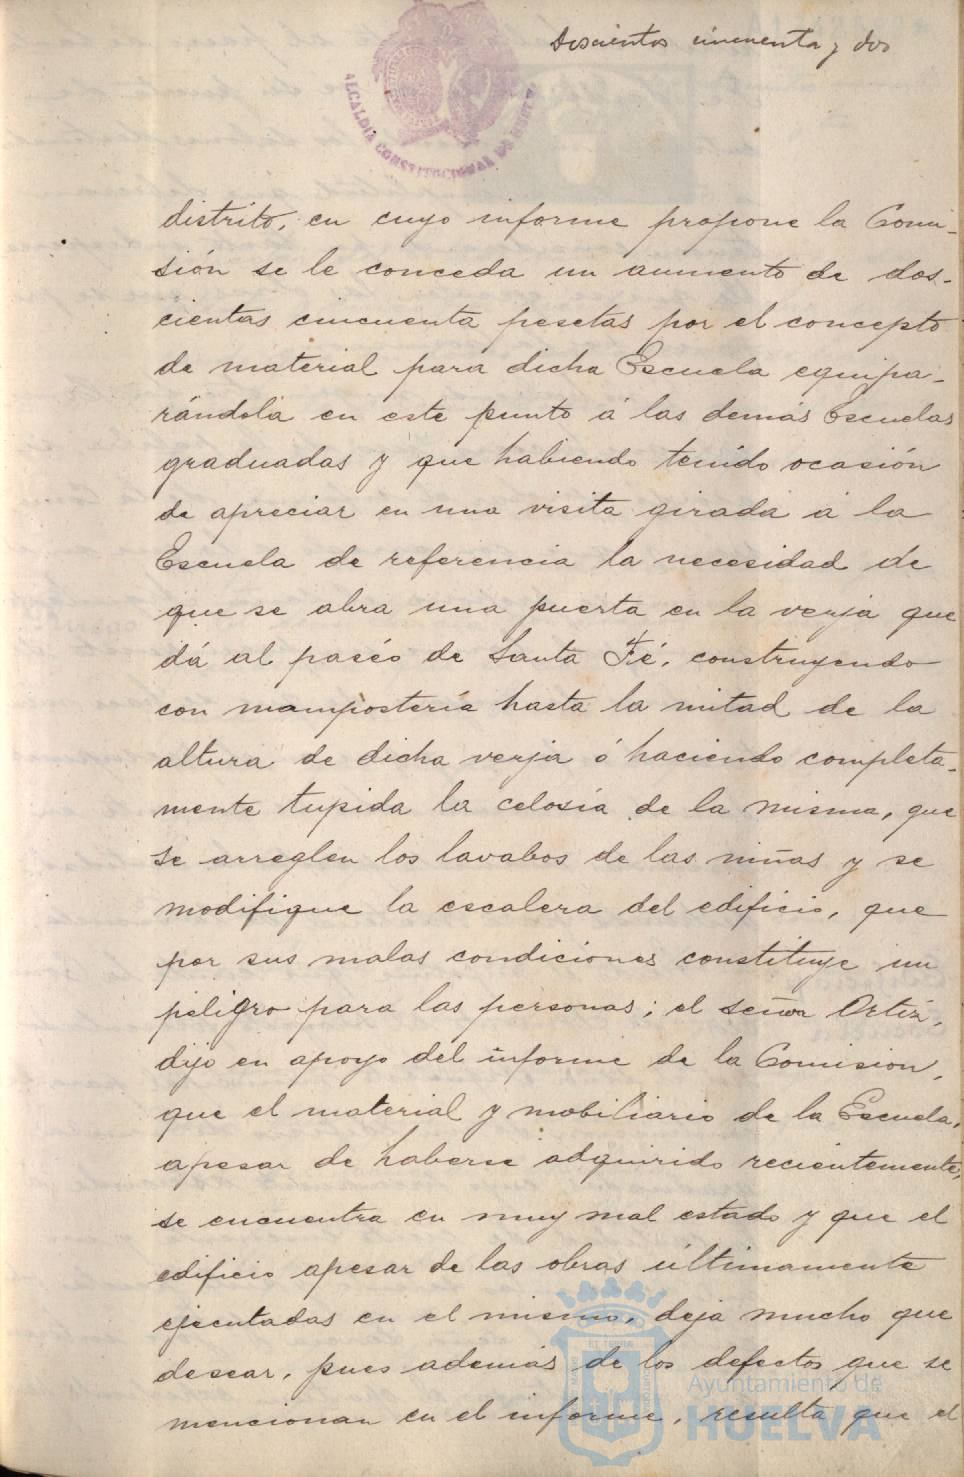 Doscientos cincuenta y dos
ALCALDIA CONSTITUCIONAL DE HUELVA
distrito, en cuyo informe propone la Comi-
sión se le conceda un aumento de dos-
cientas cincuenta pesetas por el concepto
de material para dicha Escuela equipa-
rándola en este punto á las demás Escuelas
graduadas y que habiendo tenido ocasión
de apreciar en una visita girada á la
Escuela de referencia la necesidad de
que se abra una puerta en la verja que
dá al paseo de Santa Fé, construyendo
con mampostería hasta la mitad de la
altura de dicha verja ó haciendo completa-
mente tupida la celosía de la misma, que
se arreglen los lavabos de las niñas y se
modifique la escalera del edificio, que
por sus malas condiciones constituye un
peligro para las personas; el señor Ortiz,
dijo en apoyo del informe de la Comision,
que el material y mobiliario de la Escuela,
apesar de haberse adquirido recientemente,
se encuentra en muy mal estado y que el
edificio apesar de las obras últimamente
ejecutadas en el mismo, deja mucho que
desear, pues además de los defectos que se
mencionan en el informe, resulta que el
Ayuntamiento de
HUELVA